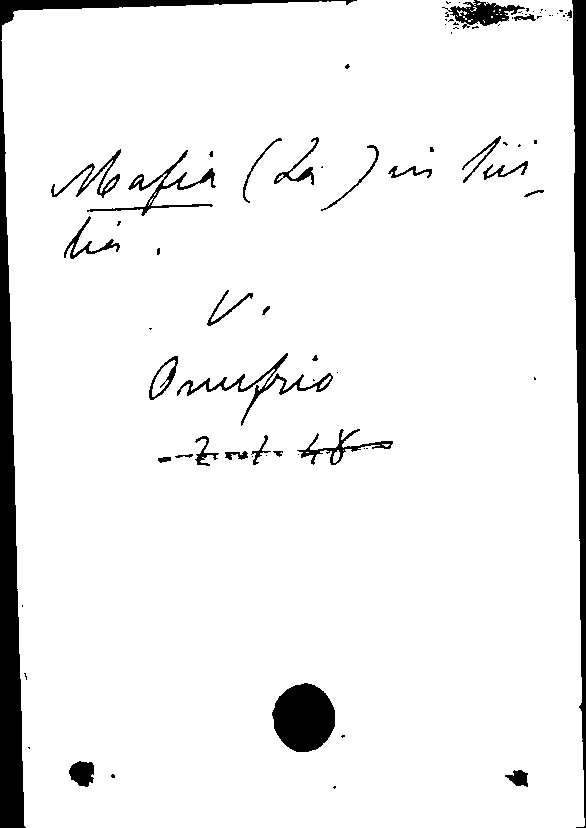 Mafia (La) in Sici-
lia.
V.
Onufrio